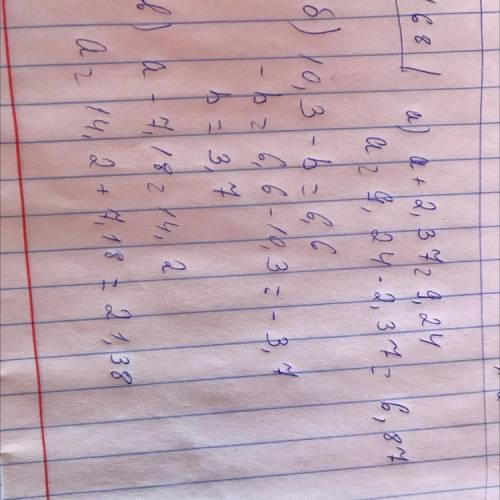 168
а) a + 2,37 = 9,24
a = 9,24 - 2,37 = 6,87
б) 10,3 - b = 6,6
- b = 6,6 - 10,3 = - 3,7
b = 3,7
в) a - 7,18 = 14,2
a = 14,2 + 7,18 = 21,38